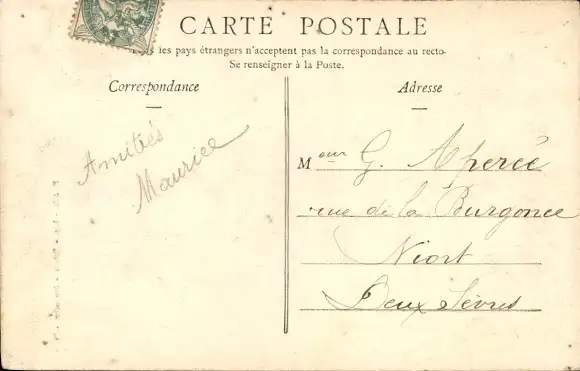 CARTE POSTALE
les pays étrangers n'acceptent pas la correspondance au recto.
Se renseigner à la Poste.
Correspondance
Adresse
Amitiés
Maurice
Meur G. Apercé
rue de la Burgonce
Niort
Deux Sèvres